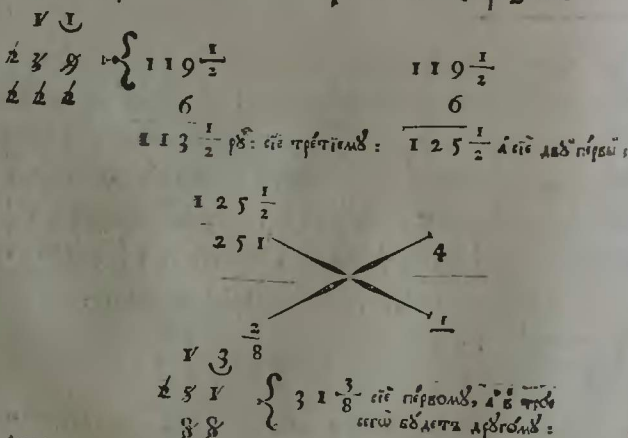 1 1
2 3 9 { 119 1/2 119 1/2
2 2 2 6 6
113 1/2 рꙋ҃: сїѐ тре́тїемꙋ: 125 1/2 а҆ сїѐ двꙋ̀ пе́рвы
125 1/2
251 4
2/8 1
1 3
2 5 1 { 31 3/8 сїѐ пе́рвомꙋ, а҆ в
8 8 сегѡ̀ бꙋ́детъ дрꙋго́мꙋ: